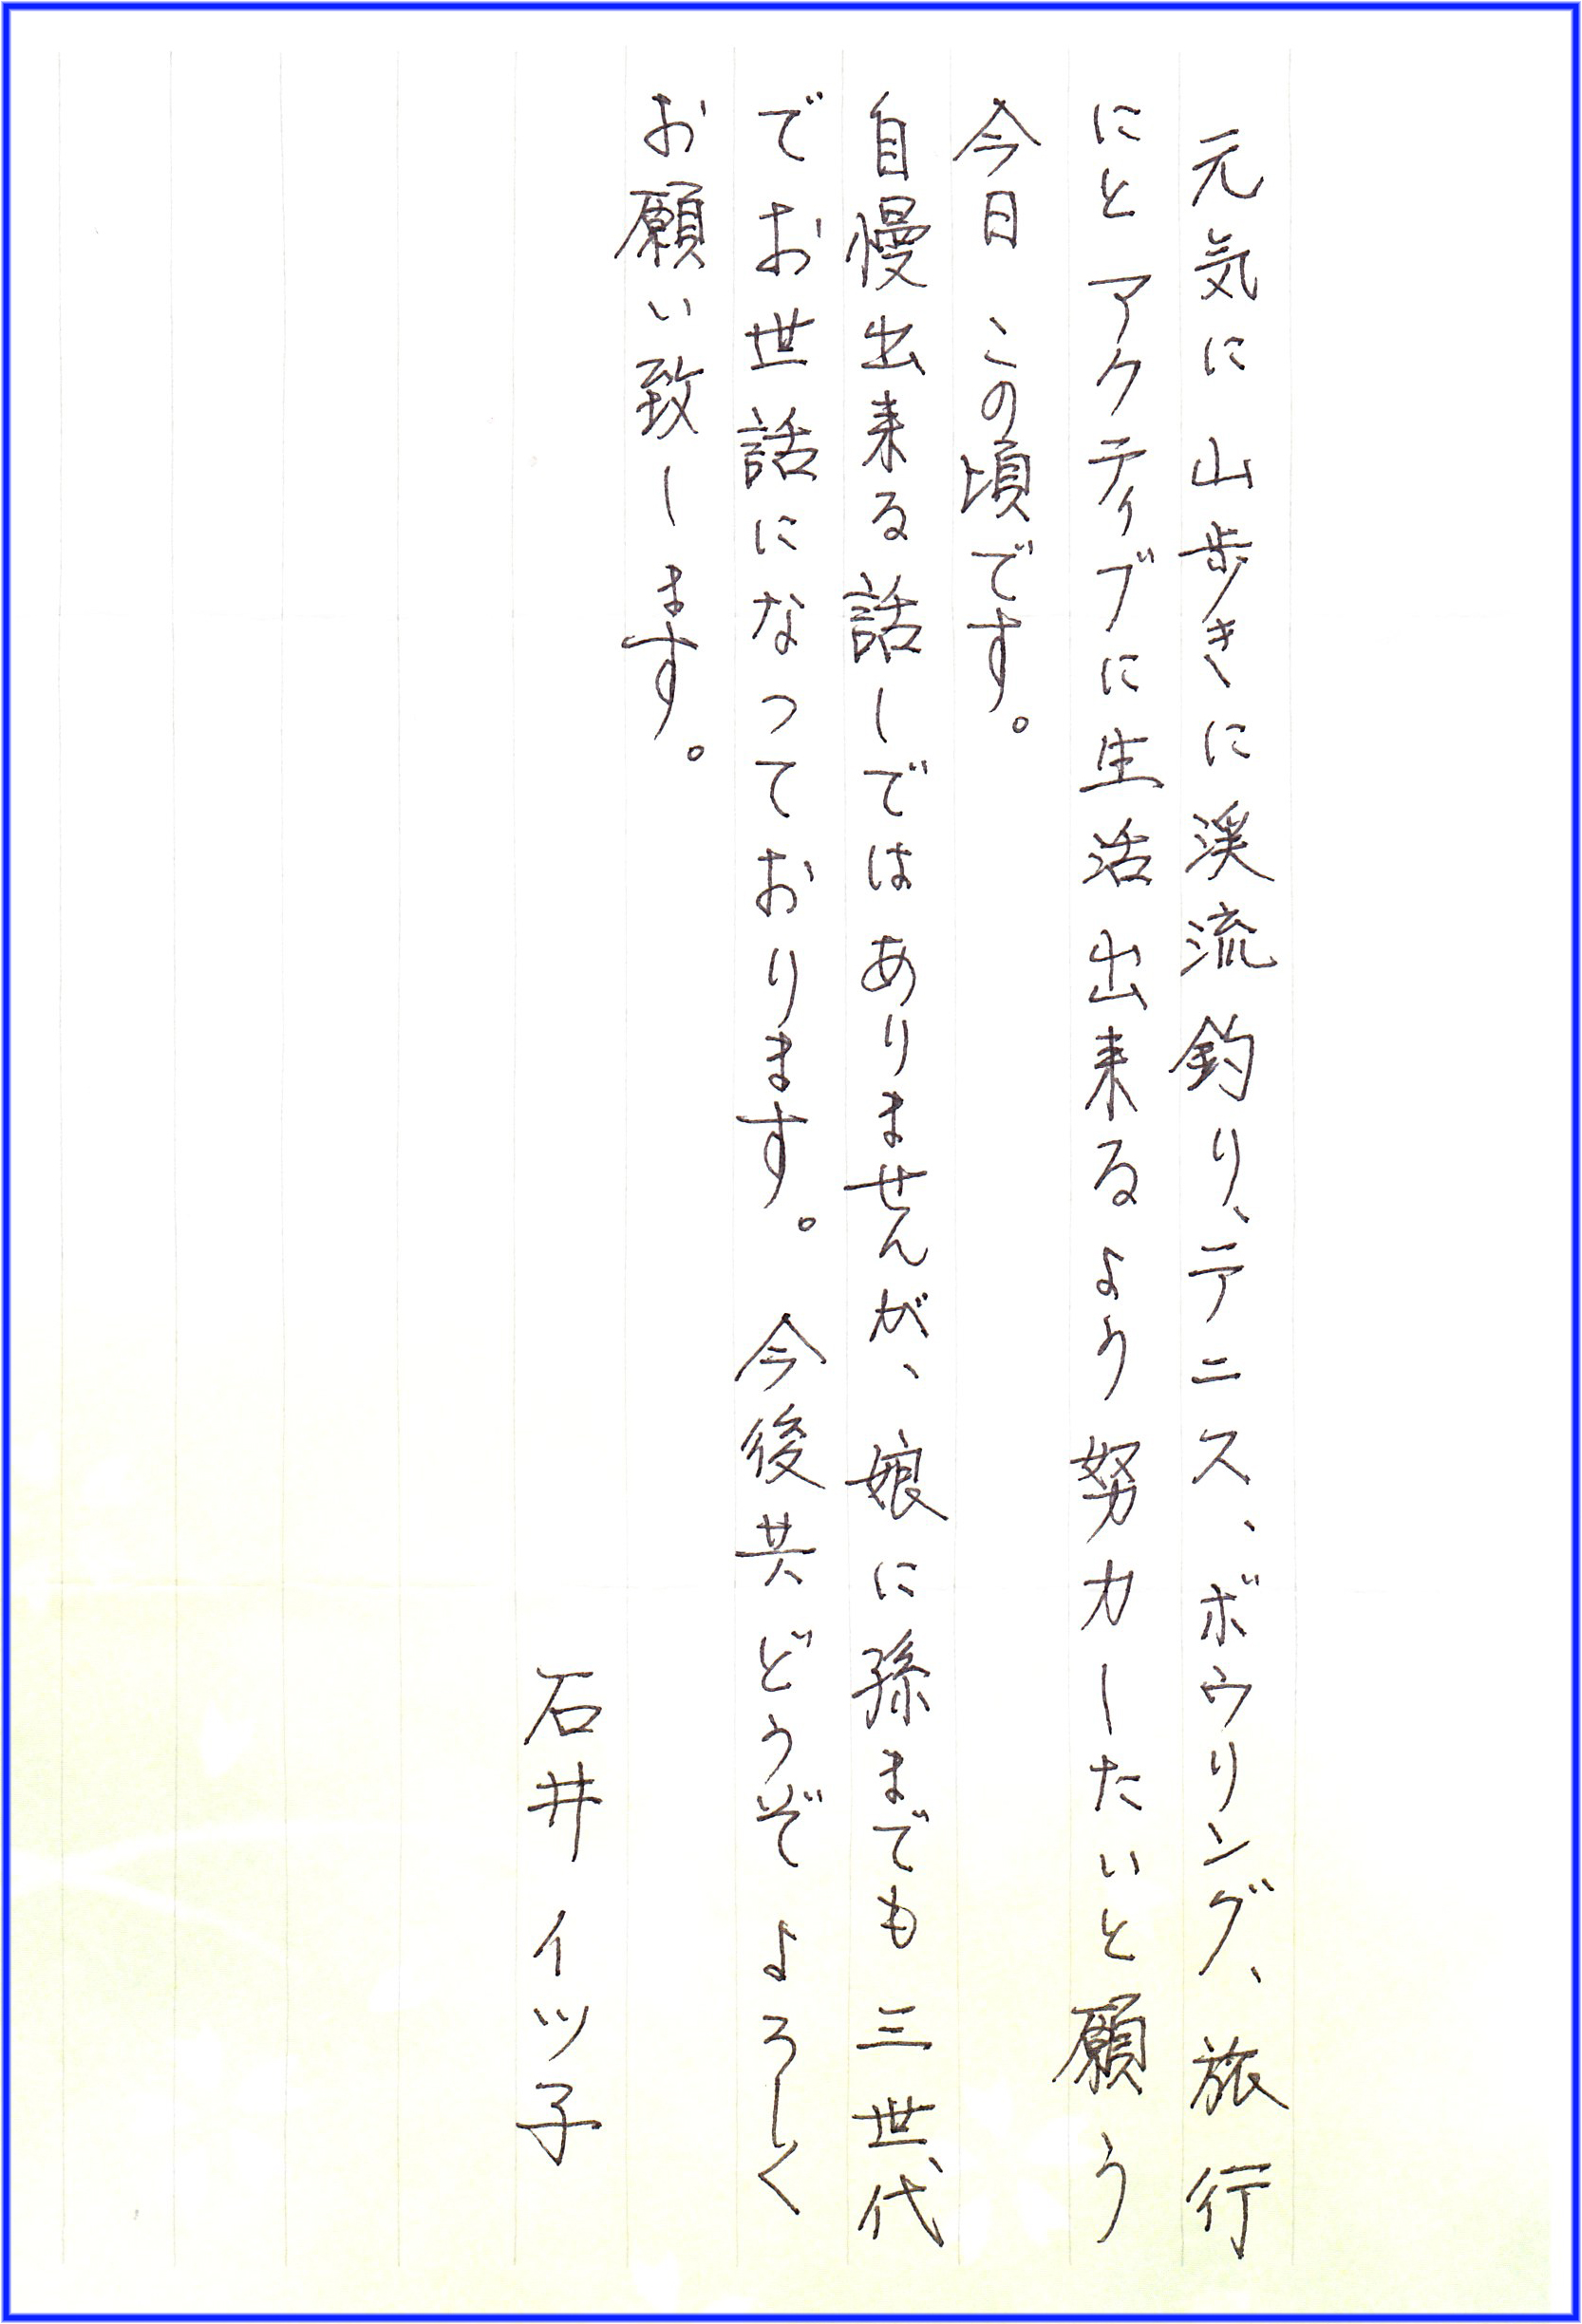 元気に山歩きに渓流釣り、テニス、ボウリング、旅行
にとアクティブに生活出来るよう努力したいと願う
今日この頃です。
自慢出来る話しではありませんが、娘に孫までも三世代
でお世話になっております。今後共どうぞよろしく
お願い致します。
石井イツ子